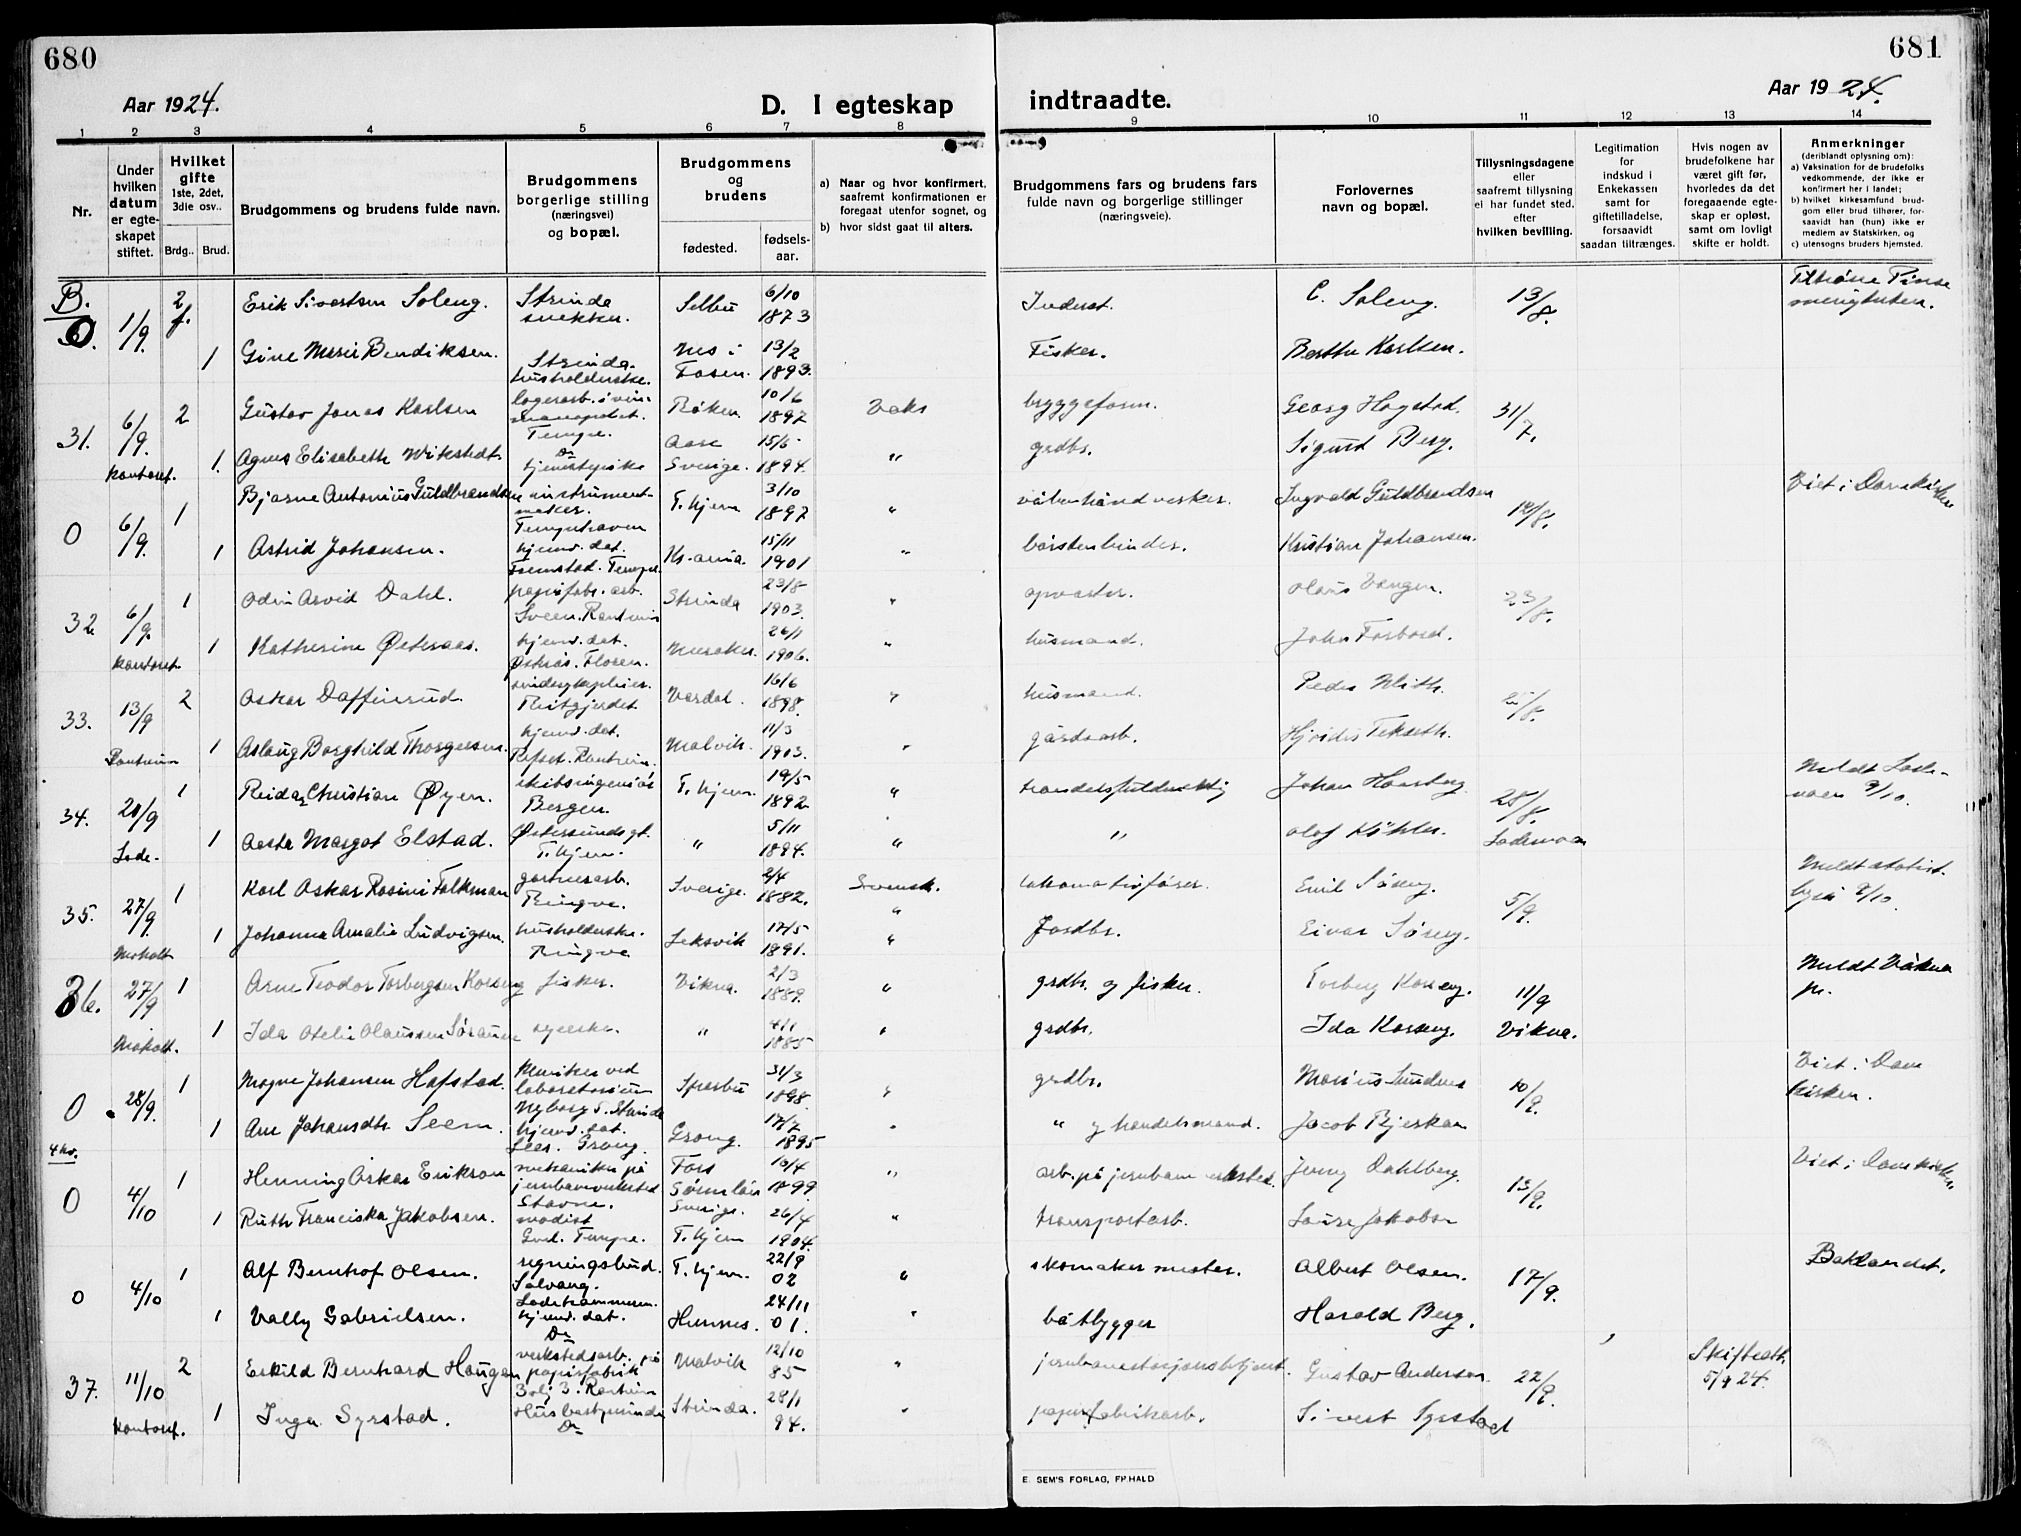 680
681
Aar 1924.
D. I egteskap
indtraadte.
Aar 1924.
1 2 3 4 5 6 7 8 9 10 11 12 13 14
Nr.
Under hvilken datum er egteskapet stiftet.
Hvilket gifte
1ste, 2det, 3die osv..
Brdg.. Brud.
Brudgommens og brudens fulde navn.
Brudgommens borgerlige stilling (næringsvei) og bopæl.
Brudgommens og brudens
fødested.
fødsels-aar.
a) Naar og hvor konfirmert, saafremt konfirmationen er foregaat utenfor sognet, og
b) hvor sidst gaat til alters.
Brudgommens fars og brudens fars fulde navn og borgerlige stillinger (næringsveie).
Forlovernes navn og bopæl.
Tillysningsdagene eller saafremt tillysning ei har fundet sted, efter hvilken bevilling.
Legitimation for indskud i Enkekassen samt for giftetilladelse, forsaavidt saadan tiltrænges.
Hvis nogen av brudefolkene har været gift før, hvorledes da det foregaaende egteskap er opløst, samt om lovligt skifte er holdt.
Anmerkninger
(deriblandt oplysning om):
a) Vaksination for de brudefolks vedkommende, der ikke er konfirmert her i landet;
b) hvilket kirkesamfund brudgom eller brud tilhører, forsaavidt han (hun) ikke er medlem av Statskirken, og
c) utensogns bruders hjemsted.
B.
0 1/9. 2 Erik Sivertsen Soleng. Strinda snekker. Selbu 6/10 1873 Inderst. C. Soleng. 13/8.
1 Gine Marie Bendiksen. Strinda. husholderske. Nes i Fosen. 13/2 1893. Fisker. Berthe Karlsen.
31. 6/9. kontoret. 2 Gustav Jonas Karlsen Tempe. Røken. 10/6 1897 Vaks bryggeform. Georg Hagstad. 31/7.
1. Agnes Elisabeth Wikstedt. Do Sverige. 15/5 1894. " grdbr. Sigurd Berg.
0 6/9. 1 Bjarne Antonius Guldbrandsen instrumentmaker. Tempehaven T.hjem 3/10 1897 " Ingvald Guldbrandsen 12/8. Viet i Domkirken
1 Astrid Johansen. hjemv. dat. Tempe. Kr-ania. 15/11 1901 " børstenbinder. Kristian Johansen.
32 6/9. kontoret 1 Odin Arvid Dahl. papirfabr. arb. Strinda 23/8 1903. " opvarter. Olaus Vangen. 23/8.
1 Katherine Østeraas. hjemv. dat. Meraker. 26/1 1906. " husmand. John Forbord.
33. 13/9 Rantheim 2 Oskar Daffinrud Reitgjerdet Vardal. 16/6 1898. " husmand. Peder Mith. /8.
1 Aslaug Borghild Thorgersen. hjemv. dat. Malvik. 11/3 1903. " gårdsarb.
34. 20/9 Lade. 1 Reidar Christian Øyen. skibsingeniør Bergen. T.hjem. 19/5 1892. " handelsfuldmektig Johan Haarberg. 28/8. Lademoen Meldt Lademoen 9/10.
1 Aasta Margot Elstad. Østersundsgt. T.hjem. " 5/11 1894. " " Olaf Köhler.
35. 27/9. Moholt 1 Karl Oskar Rosini Falkman gartnerarb. Ringve. Sverige. 2/4 1882. Svensk. " lokomotivfører. Emil Søreng. 5/9. Meldt 9/10
1 Johanna Amalie Ludvigsen. husholderske. Ringve Leksvik 17/5 1891. " Jordbr. Einar Søreng.
36. 27/9 Moholt. 1 Arne Teodor Torbergsen Korseng fisker. Vikna. 2/3 1889. " grdbr. og fisker. Torberg Korseng. 11/9 Vikna. Meldt Vikna pr.
1 Ida Otelie Olaussen syerske. " 4/1 1885 " grdbr. Ida Korseng.
0 28/9. 1 Magne Johansen Hafstad. Kemiker ved laboratorium Nyborg T. Strinda Sparbu 31/3 1898. " grdbr. Marius Lundnes 10/9. Viet i Domkirken.
1 Ane Johansdtr Seem. hjemv. dat. Seem. Grong. Grong. 17/7 1895 " " og handelsmand. Jacob
4 kv.
0 4/10 1 Henning Oskar Erikson mekaniker på jernbaneverksted Stavne. Fors Sverige. 10/4 1899 " arb. på jernbaneverksted. Jenny Dahlberg. 13/9. Viet i Domkirken.
1 Ruth Franciska Jakobsen. modist Tempe. T.hjem 26/4 1904. " transportarb. Laura Jakobsen
0 4/10 1 Alf Bernhof Olsen. regningsbud. Solvang. Ladehammeren. T.hjem. 22/9 02 " skomakermester. Albert Olsen. 17/9. Baklandet.
1 Vally Gabrielsen. hjemv. dat. Do Hemnes. 24/11 01. " båtbygger Harald Berg.
37. 11/10 kontoret. 2 Eskild Bernhard Haugen verkstedsarb. på papirfabrik Malvik 12/10 85 " jernbanestasjonsbetjent. Gustav Anderson. 22/9. Skifteatt. 5/9 24.
1 Inga Syrstad. Husbestyrinde Do Strinda. 28/1 94. " papirfabrikarb. Sivert Syrstad
E. SEM'S FORLAG, FR.HALD